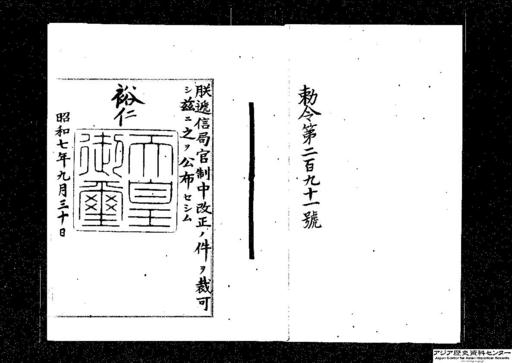 勅令第二百九十一號
朕遞信局官制中改正ノ件ヲ裁可
シ玆ニ之ヲ公布セシム
裕仁
天皇
御璽
昭和七年九月三十日
アジア歴史資料センター
Japan Center for Asian Historical Records